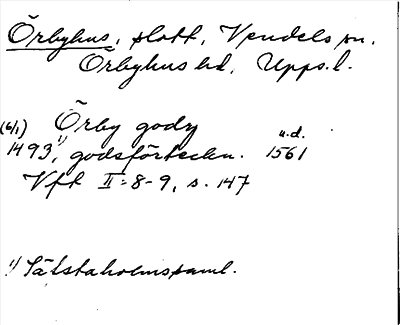 Örbyhus, slott, Vendels sn.
Örbyhus hd, Upps.l.
(6/1) Örby godz u.d.
1493,¹⁾ godsförteckn. 1561
Vfk II:8-9, s. 147
¹⁾ Sätstaholmssaml.